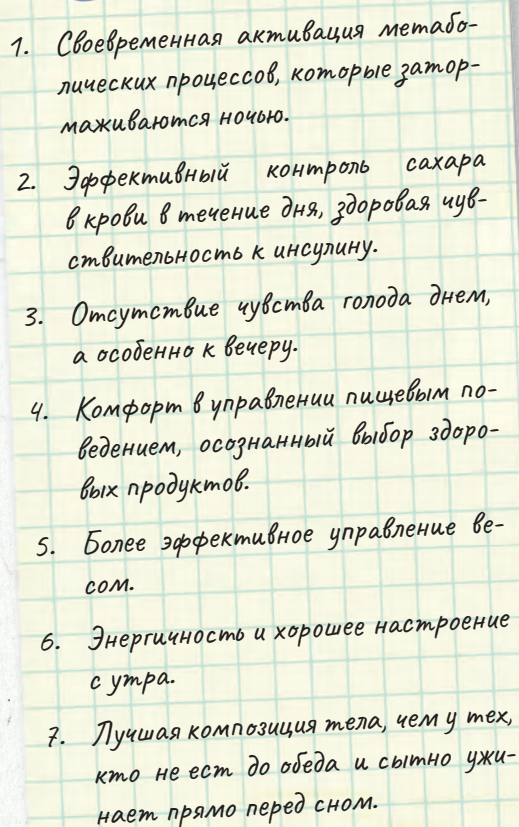 1. Своевременная активация метабо-
лических процессов, которые затор-
маживаются ночью.
2. Эффективный контроль сахара
в крови в течение дня, здоровая чув-
ствительность к инсулину.
3. Отсутствие чувства голода днем,
а особенно к вечеру.
4. Комфорт в управлении пищевым по-
ведением, осознанный выбор здоро-
вых продуктов.
5. Более эффективное управление ве-
сом.
6. Энергичность и хорошее настроение
с утра.
7. Лучшая композиция тела, чем у тех,
кто не ест до обеда и сытно ужи-
нает прямо перед сном.